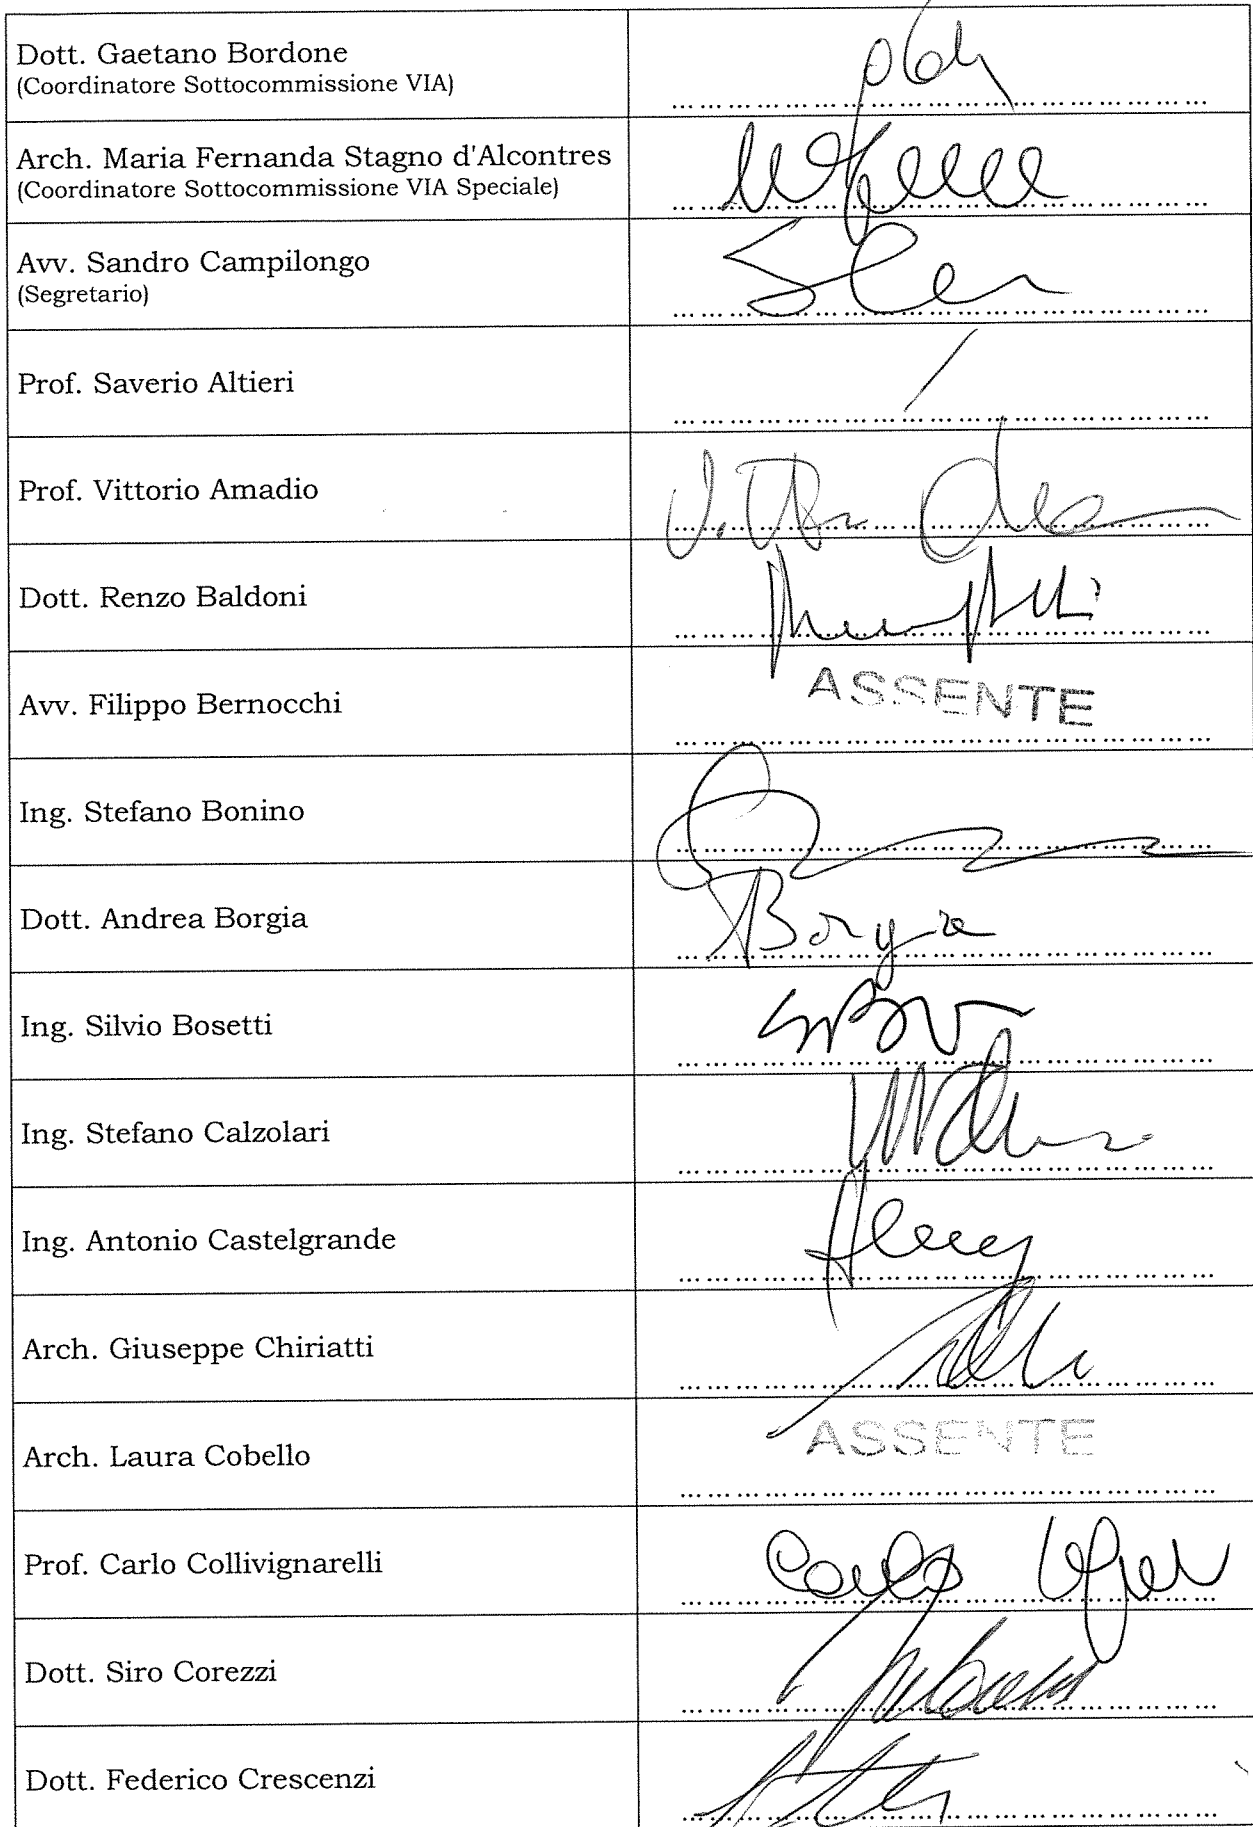 Dott. Gaetano Bordone
(Coordinatore Sottocommissione VIA)
Arch. Maria Fernanda Stagno d'Alcontres
(Coordinatore Sottocommissione VIA Speciale)
Avv. Sandro Campilongo
(Segretario)
Prof. Saverio Altieri
Prof. Vittorio Amadio
Dott. Renzo Baldoni
Avv. Filippo Bernocchi
ASSENTE
Ing. Stefano Bonino
Dott. Andrea Borgia
Borgia
Ing. Silvio Bosetti
Ing. Stefano Calzolari
Ing. Antonio Castelgrande
Arch. Giuseppe Chiriatti
Arch. Laura Cobello
ASSENTE
Prof. Carlo Collivignarelli
Carlo
Dott. Siro Corezzi
Dott. Federico Crescenzi